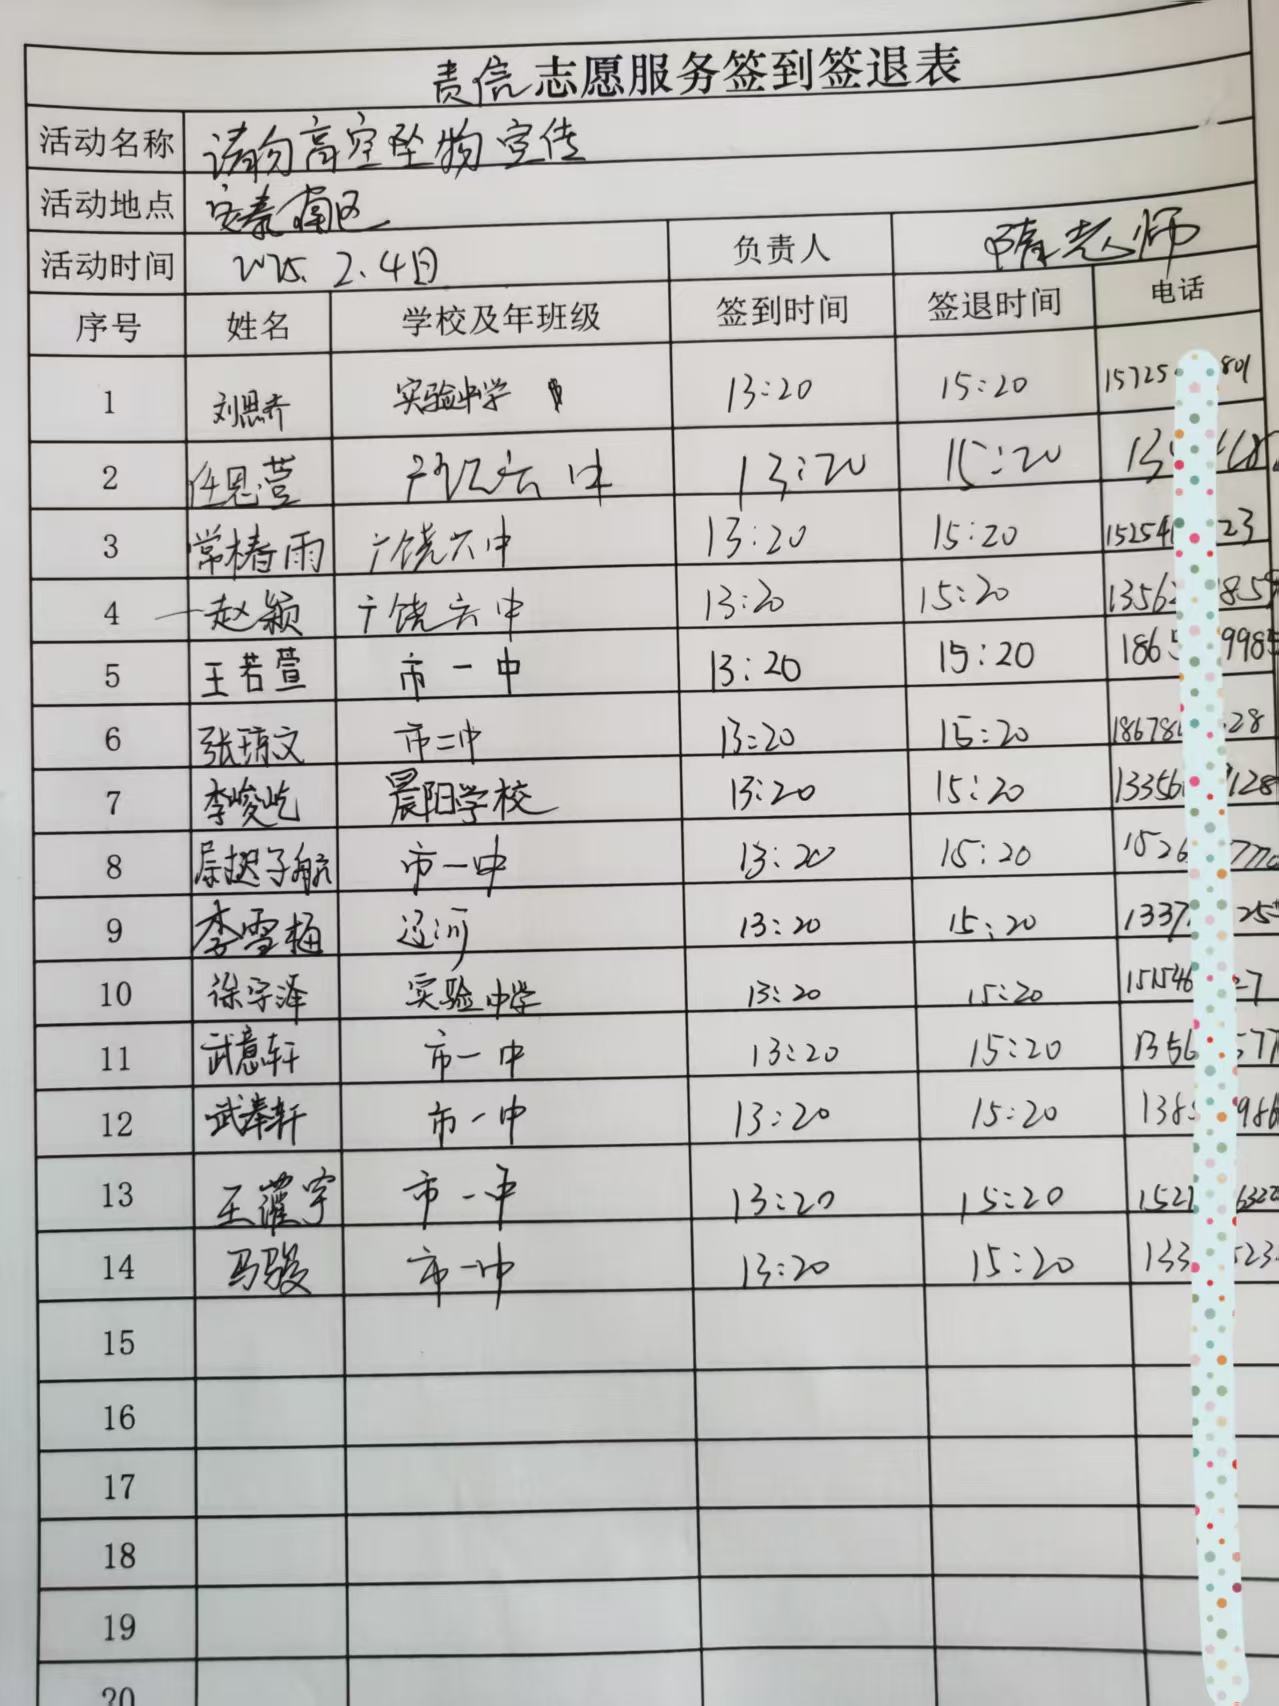 责信志愿服务签到签退表
活动名称 请勿高空坠物宣传
活动地点 安泰南区
活动时间 2025. 2.4日 负责人 隋老师
序号 姓名 学校及年班级 签到时间 签退时间 电话
1 刘思齐 实验中学 13:20 15:20 15725 801
2 任思萱 广饶六中 13:20 15:20
3 常椿雨 广饶六中 13:20 15:20 15254 23
4 赵颖 广饶六中 13:20 15:20 1356 85
5 王若萱 市一中 13:20 15:20 186 998
6 张琦文 市二中 13:20 15:20 18678 28
7 李峻屹 晨阳学校 13:20 15:20 13356 128
8 尉迟子航 市一中 13:20 15:20 1526 777
9 李雪梅 辽河 13:20 15:20 1337 25
10 徐宇泽 实验中学 13:20 15:20 151546 27
11 武意轩 市一中 13:20 15:20 1356 577
12 武奉轩 市一中 13:20 15:20 138 986
13 王濯宇 市一中 13:20 15:20 152 632
14 马骏 市一中 13:20 15:20 133 523
15
16
17
18
19
20